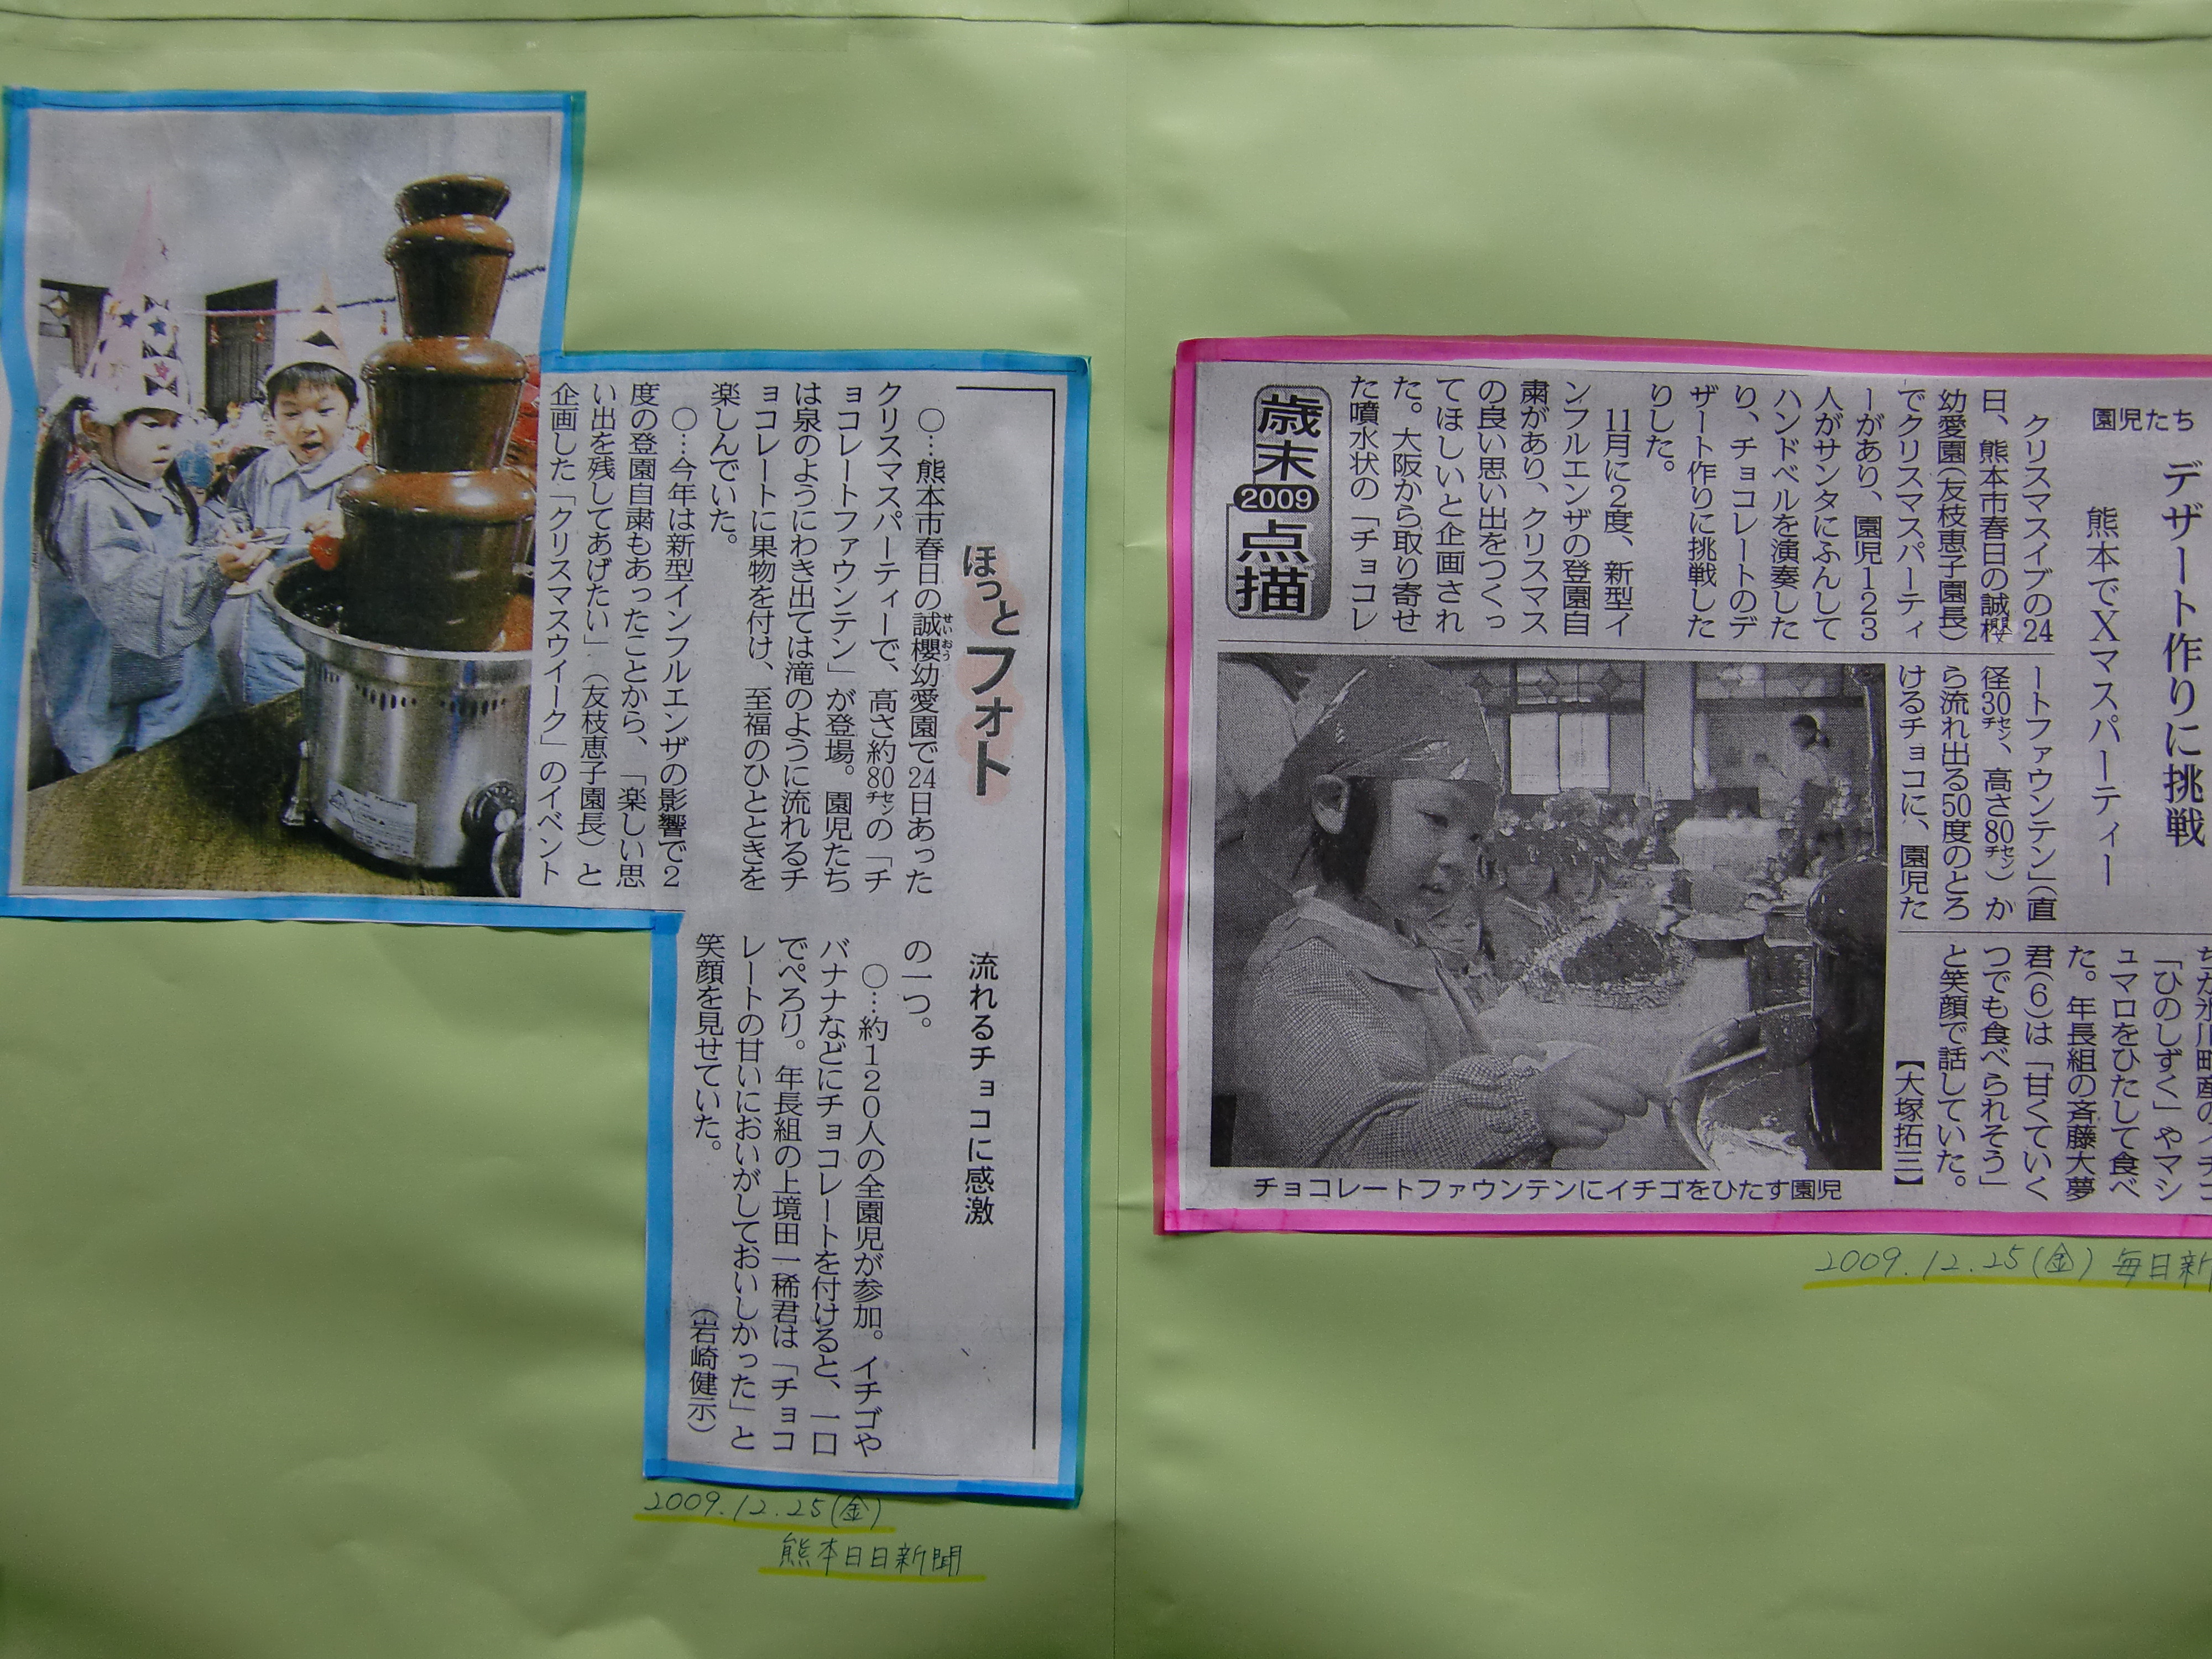 ほっとフォト
流れるチョコに感激
○…熊本市春日の誠櫻幼愛園で24日あった
せいおう
クリスマスパーティーで、高さ約80㌢の「チ
ョコレートファウンテン」が登場。園児たち
は泉のようにわき出ては滝のように流れるチ
ョコレートに果物を付け、至福のひとときを
楽しんでいた。
○…今年は新型インフルエンザの影響で2
度の登園自粛もあったことから、「楽しい思
い出を残してあげたい」（友枝恵子園長）と
企画した「クリスマスウイーク」のイベント
の一つ。
○…約120人の全園児が参加。イチゴや
バナナなどにチョコレートを付けると、一口
でぺろり。年長組の上境田一稀君は「チョコ
レートの甘いにおいがしておいしかった」と
笑顔を見せていた。
（岩崎健示）
2009.12.25(金)
熊本日日新聞
園児たち
デザート作りに挑戦
熊本でXマスパーティー
クリスマスイブの24
日、熊本市春日の誠櫻
幼愛園(友枝恵子園長)
でクリスマスパーティ
ーがあり、園児123
人がサンタにふんして
ハンドベルを演奏した
り、チョコレートのデ
ザート作りに挑戦した
りした。
11月に2度、新型イ
ンフルエンザの登園自
粛があり、クリスマス
の良い思い出をつくっ
てほしいと企画され
た。大阪から取り寄せ
た噴水状の「チョコレ
ートファウンテン」(直
径30㌢、高さ80㌢)か
ら流れ出る50度のとろ
けるチョコに、園児た
ちが氷川町産のイチゴ
「ひのしずく」やマシ
ュマロをひたして食べ
た。年長組の斉藤大夢
君(6)は「甘くていく
つでも食べられそう」
と笑顔で話していた。
【大塚拓三】
歳末
2009
点描
チョコレートファウンテンにイチゴをひたす園児
2009.12.25(金) 毎日新